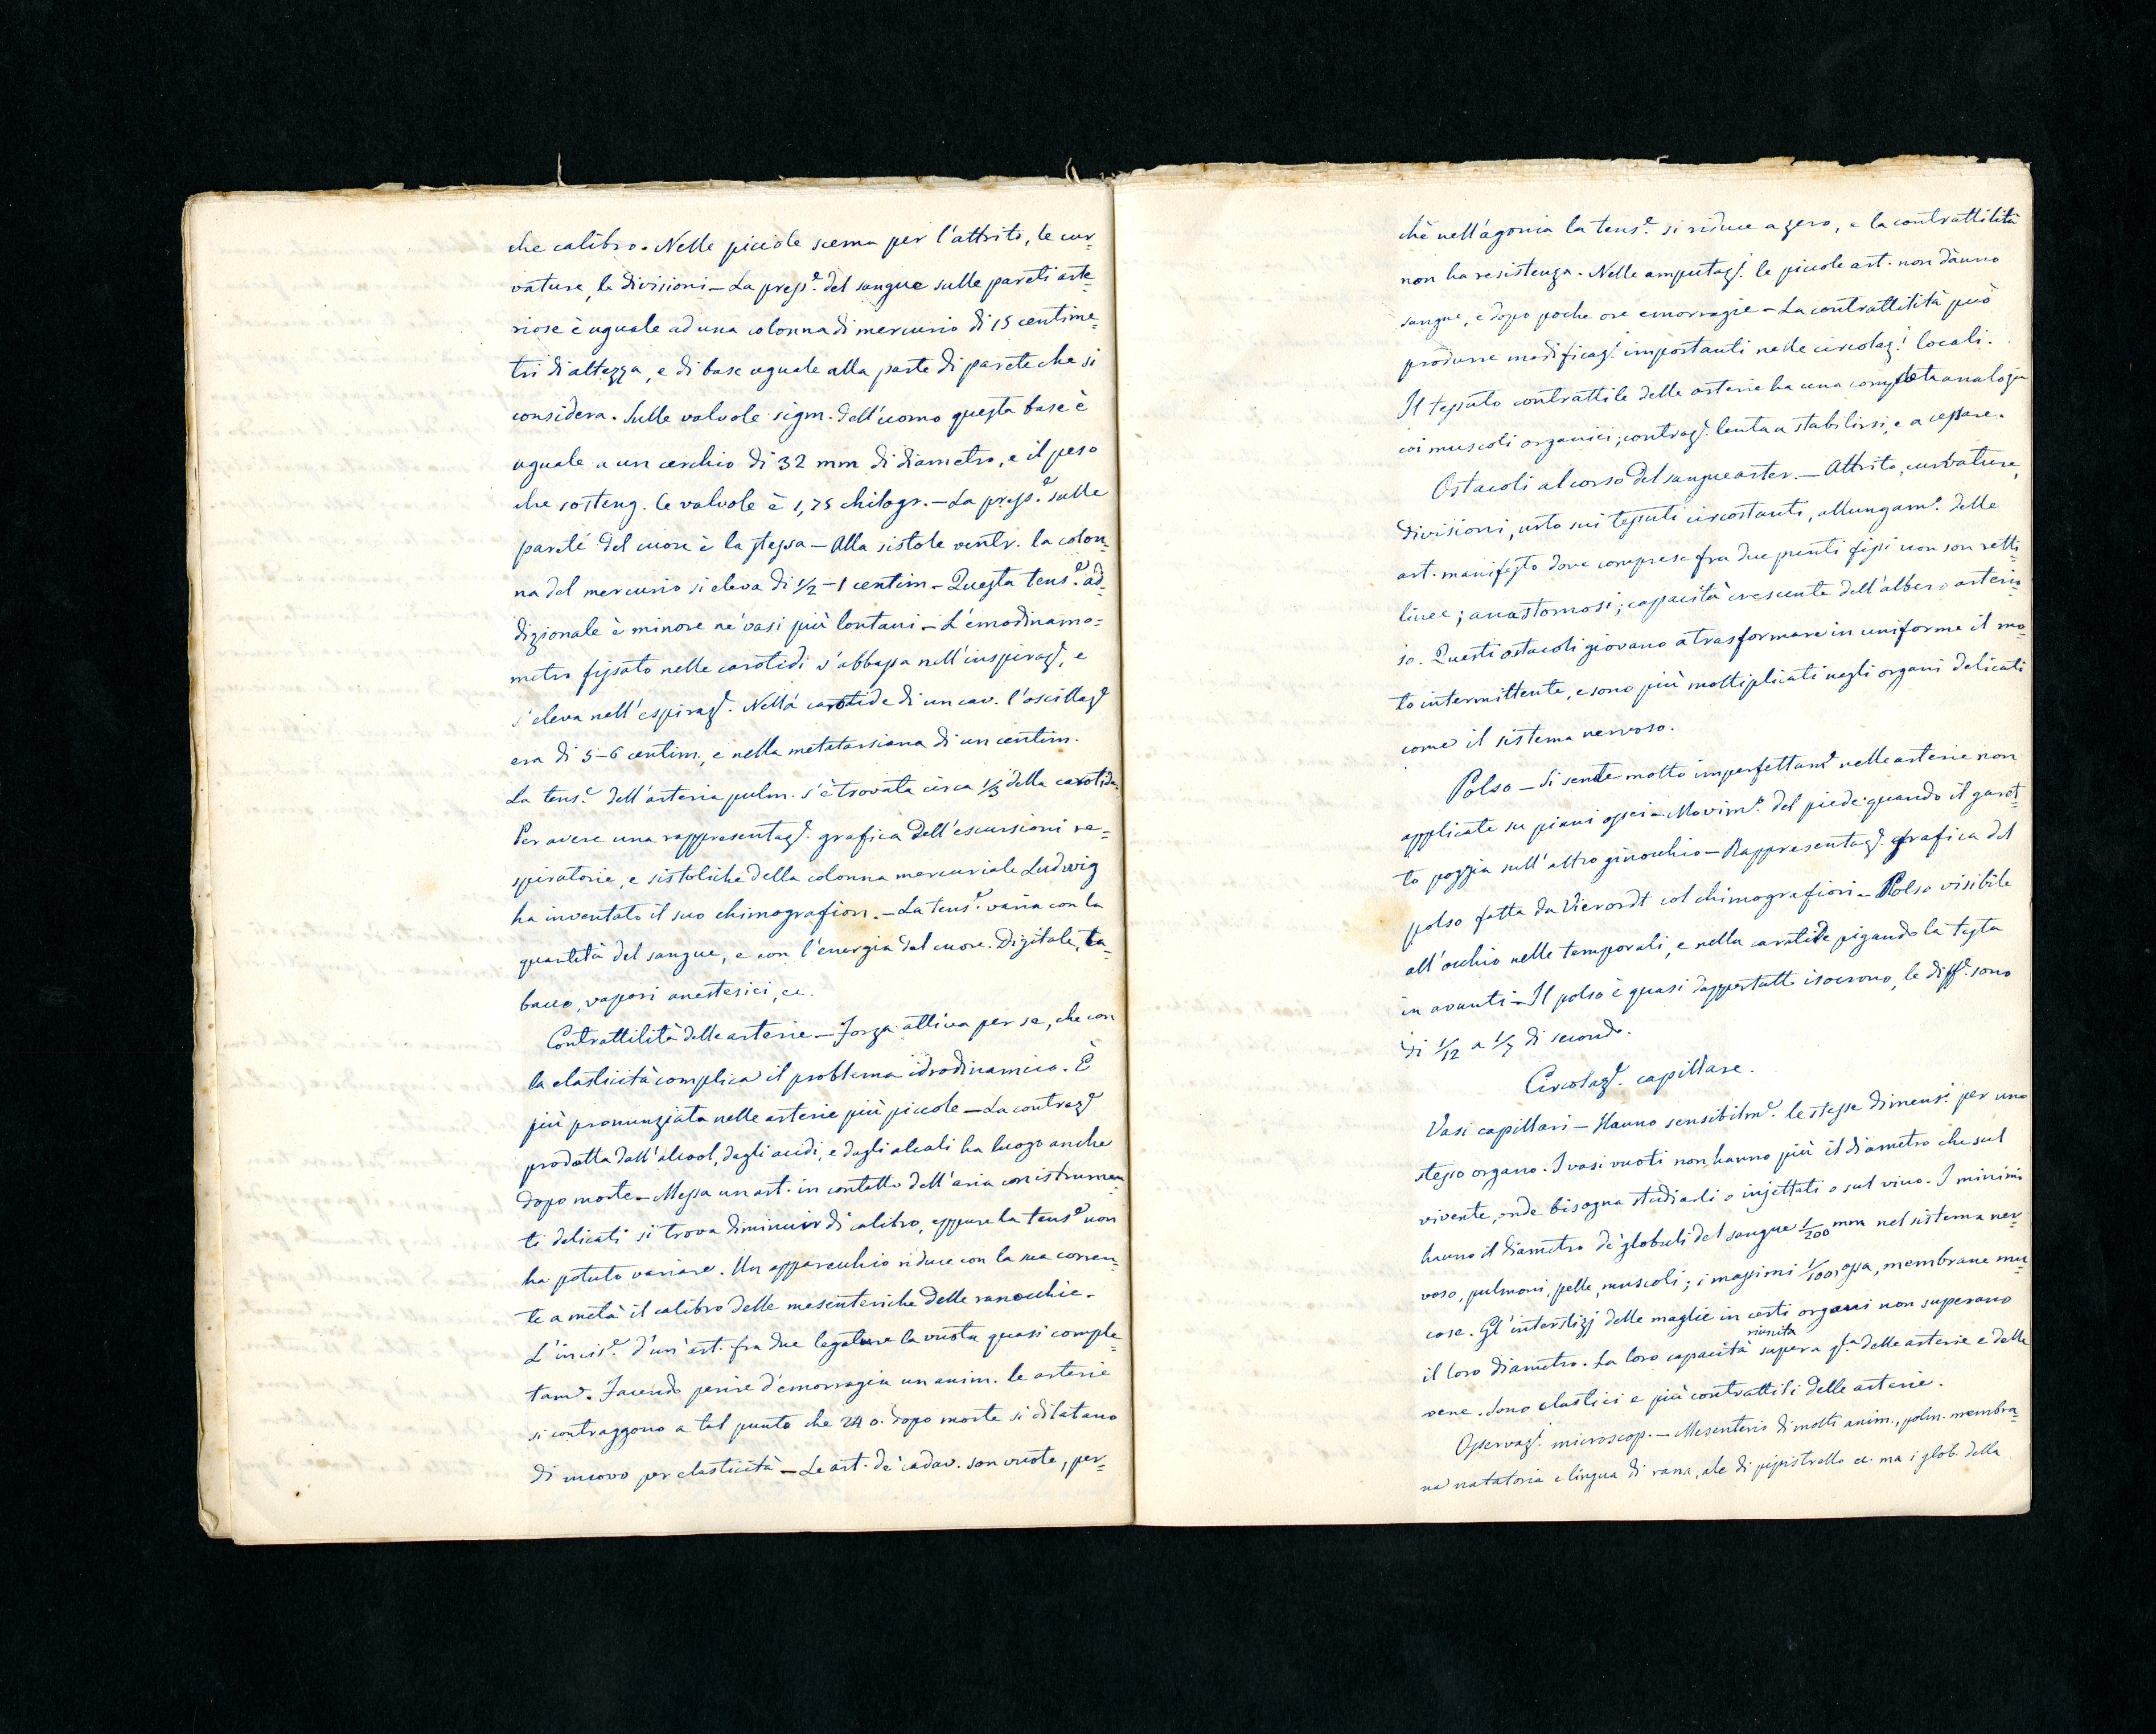 che calibro. Nelle piccole scema per l'attrito, le cur=
vature, le divisioni — La press.e del sangue sulle pareti arte=
riose è uguale ad una colonna di mercurio di 15 centime=
tri di altezza, e di base uguale alla parte di parete che si
considera. Sulle valvole sigm. dell'uomo questa base è
uguale a un cerchio di 32 mm di diametro, e il peso
che sosteng. le valvole è 1,75 chilogr. — La press.e sulle
pareti del cuore è la stessa — Alla sistole ventr. la colon=
na del mercurio si eleva di 1/2 – 1 centim — Questa tens.e ad=
dizionale è minore ne' vasi più lontani — L'emodinamo=
metro fissato nelle carotidi s'abbassa nell'inspiraz.e, e
s'eleva nell'espiraz.e. Nella carotide di un cav. l'oscillaz.e
era di 5–6 centim., e nella metatarsiana di un centim.
La tens.e dell'arteria pulm. s'è trovata circa 1/3 della carotide.
Per avere una rappresentaz.e grafica dell'escursioni re=
spiratorie, e sistoliche della colonna mercuriale Ludwig
ha inventato il suo chimografion. — La tens.e varia con la
quantità del sangue, e con l'energia del cuore. Digitale, ta=
bacco, vapori anestesici, ec.
Contrattilità delle arterie — Forza attiva per se, che con
la elasticità complica il problema idrodinamico. È
più pronunziata nelle arterie più piccole — La contraz.e
prodotta dall'alcool, dagli acidi, e dagli alcali ha luogo anche
dopo morte — Messa un art. in contatto dell'aria con istrumen=
ti delicati si trova diminuir di calibro, eppure la tens.e non
ha potuto variare. Un apparecchio riduce con la sua corren=
te a metà il calibro delle mesenteriche delle ranocchie.
L'incis.e d'un'art. fra due legature la vuota quasi comple=
tam.e. Facendo perire d'emorragia un anim. le arterie
si contraggono a tal punto che 24 o. dopo morte si dilatano
di nuovo per elasticità — Le art. de' cadav. son vuote, per=
chè nell'agonia la tens.e si riduce a zero, e la contrattilità
non ha resistenza. Nelle amputaz.i le piccole art. non dànno
sangue, e dopo poche ore emorragie — La contrattilità può
produrre modificaz.i importanti nelle circolaz.i locali.
Il tessuto contrattile delle arterie ha una completa analogia
coi muscoli organici; contraz.e lenta a stabilirsi, e a cessare.
Ostacoli al corso del sangue arter. — Attrito, curvature,
divisioni, urto sui tessuti circostanti, allungam.o delle
art. manifesto dove comprese fra due punti fissi non son retti=
linee; anastomosi; capacità crescente dell'albero arterio=
so. Questi ostacoli giovano a trasformare in uniforme il mo=
to intermittente, e sono più moltiplicati negli organi delicati
come il sistema nervoso.
Polso — Si sente molto imperfettam.e nelle arterie non
applicate su piani ossei — Movim.o del piede quando il garet=
to poggia sull'altro ginocchio — Rappresentaz.e grafica del
polso fatta da Vierordt col chimografion — Polso visibile
all'occhio nelle temporali, e nella carotide pigando la testa
in avanti — Il polso è quasi dappertutto isocrono, le diff.e sono
di 1/12 a 1/7 di secondo.
Circolaz.e capillare.
Vasi capillari — Hanno sensibilm.e le stesse dimens.i per uno
stesso organo. I vasi vuoti non hanno più il diametro che sul
vivente, onde bisogna studiarli o injettati o sul vivo. I minimi
hanno il diametro de' globuli del sangue 1/200 mm nel sistema ner=
voso, pulmoni, pelle, muscoli; i massimi 1/100, ossa, membrane mu=
cose. Gl'interstizj delle maglie in certi organi non superano
il loro diametro. La loro capacità riunita supera q.la delle arterie e delle
vene. Sono elastici e più contrattili delle arterie.
Osservaz.i microscop. — Mesenterio di molti anim., polm. membra=
na natatoria e lingua di rana, ale di pipistrello ec. ma i glob. della